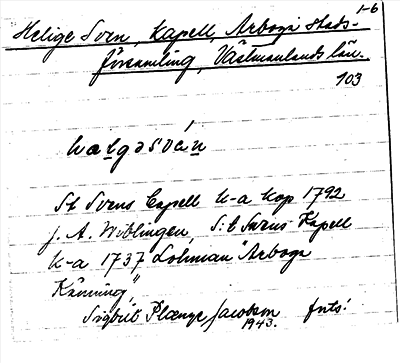 1-6
Helige Sven, Kapell, Arboga stads-
församling, Västmanlands län.
103
hæ̨lgəsvän
St Svens Capell k-a kop 1792
J. A. Wiblingen, S:t Svens Kapell
k-a 1737 Lohman "Arboga
Känning",
Sigbrit Plænge Jacobson fnts!
1943.